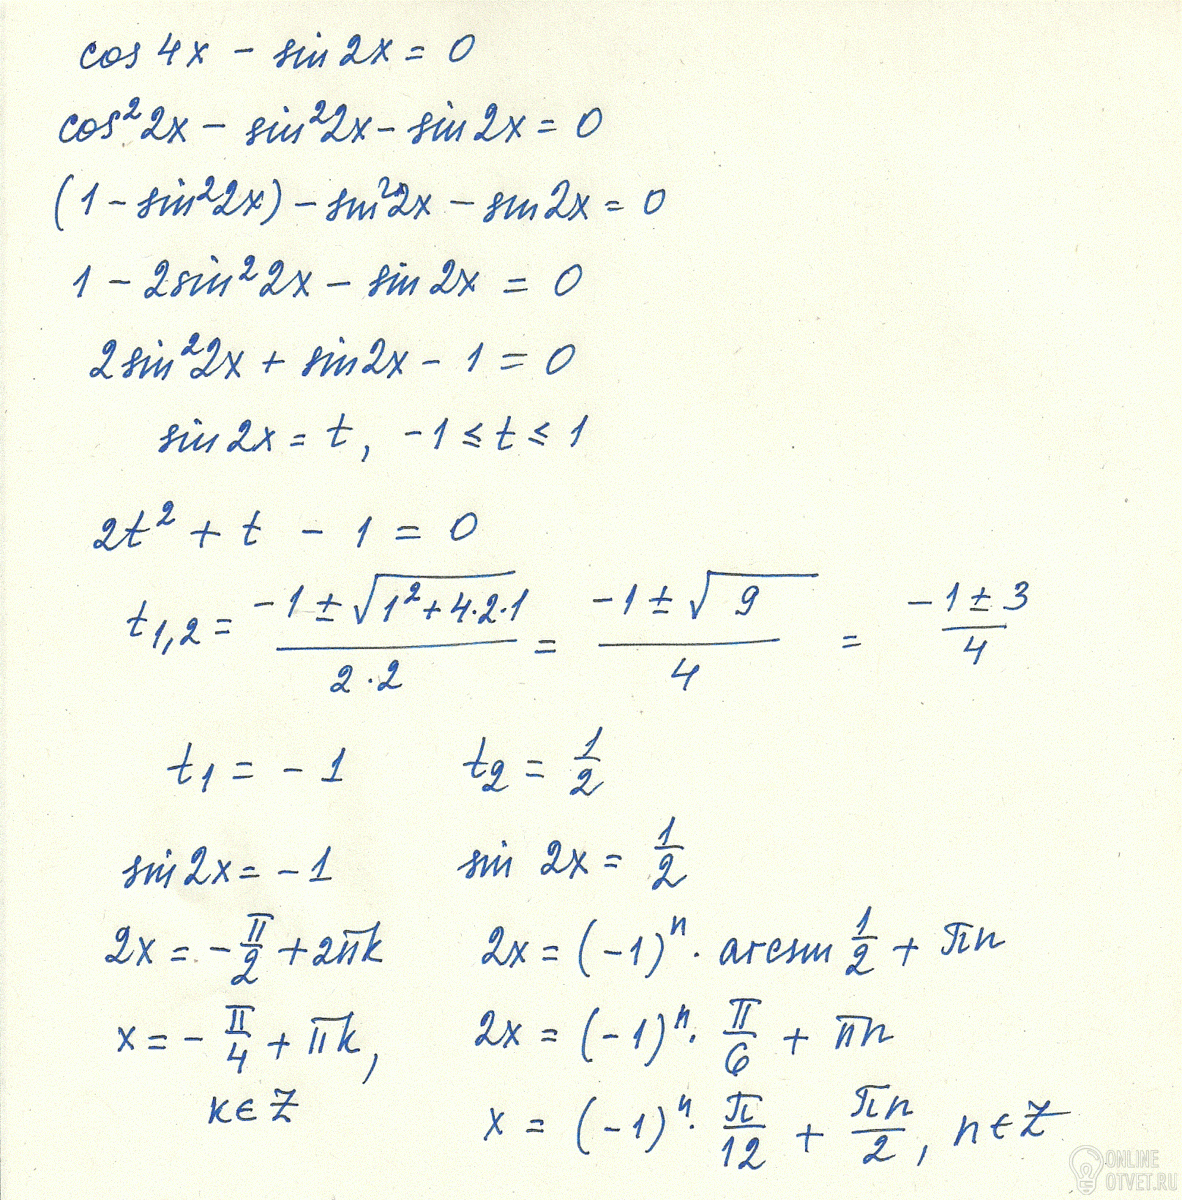 cos 4x - sin 2x = 0
cos² 2x - sin² 2x - sin 2x = 0
(1 - sin² 2x) - sin² 2x - sin 2x = 0
1 - 2sin² 2x - sin 2x = 0
2sin² 2x + sin 2x - 1 = 0
sin 2x = t, -1 ≤ t ≤ 1
2t² + t - 1 = 0
t₁,₂ = (-1 ± √(1² + 4·2·1))/(2·2) = (-1 ± √9)/4 = (-1 ± 3)/4
t₁ = -1 t₂ = 1/2
sin 2x = -1 sin 2x = 1/2
2x = -π/2 + 2πk 2x = (-1)ⁿ · arcsin 1/2 + πn
x = -π/4 + πk, 2x = (-1)ⁿ · π/6 + πn
k ∈ Z x = (-1)ⁿ · π/12 + πn/2, n ∈ Z
ONLINE
OTVET.RU